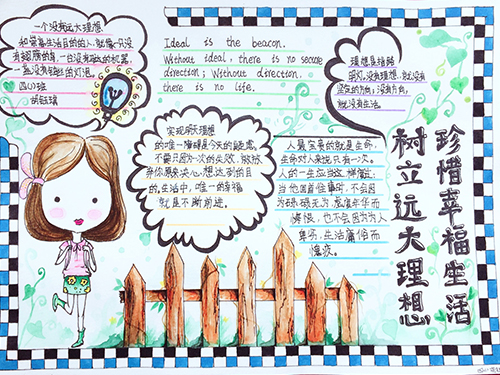 一个没有远大理想
和崇高生活目的的人,就像一只没
有翅膀的鸟,一台没有
一盏没有钨丝的灯泡。
四(1)班
Ideal is the beacon.
Without ideal, there is no secure
direction; Without direction,
there is no life.
理想是指路
明灯,没有理想,就没有
坚定的方向;没有方向,
就没有生活。
实现明天理想
的唯一障碍是今天的疑虑。
不要只因为一次的失败,就放
弃你原来决心想达到的目
的。生活中,唯一的幸福
就是不断前进。
人最宝贵的就是生命,
生命对人来说只有一次。
人的一生应当这样度过:
当他回首往事时,不会因
为碌碌无为,虚度年华而
悔恨,也不会因为为人
卑劣,生活庸俗而
愧疚。
珍惜幸福生活
树立远大理想